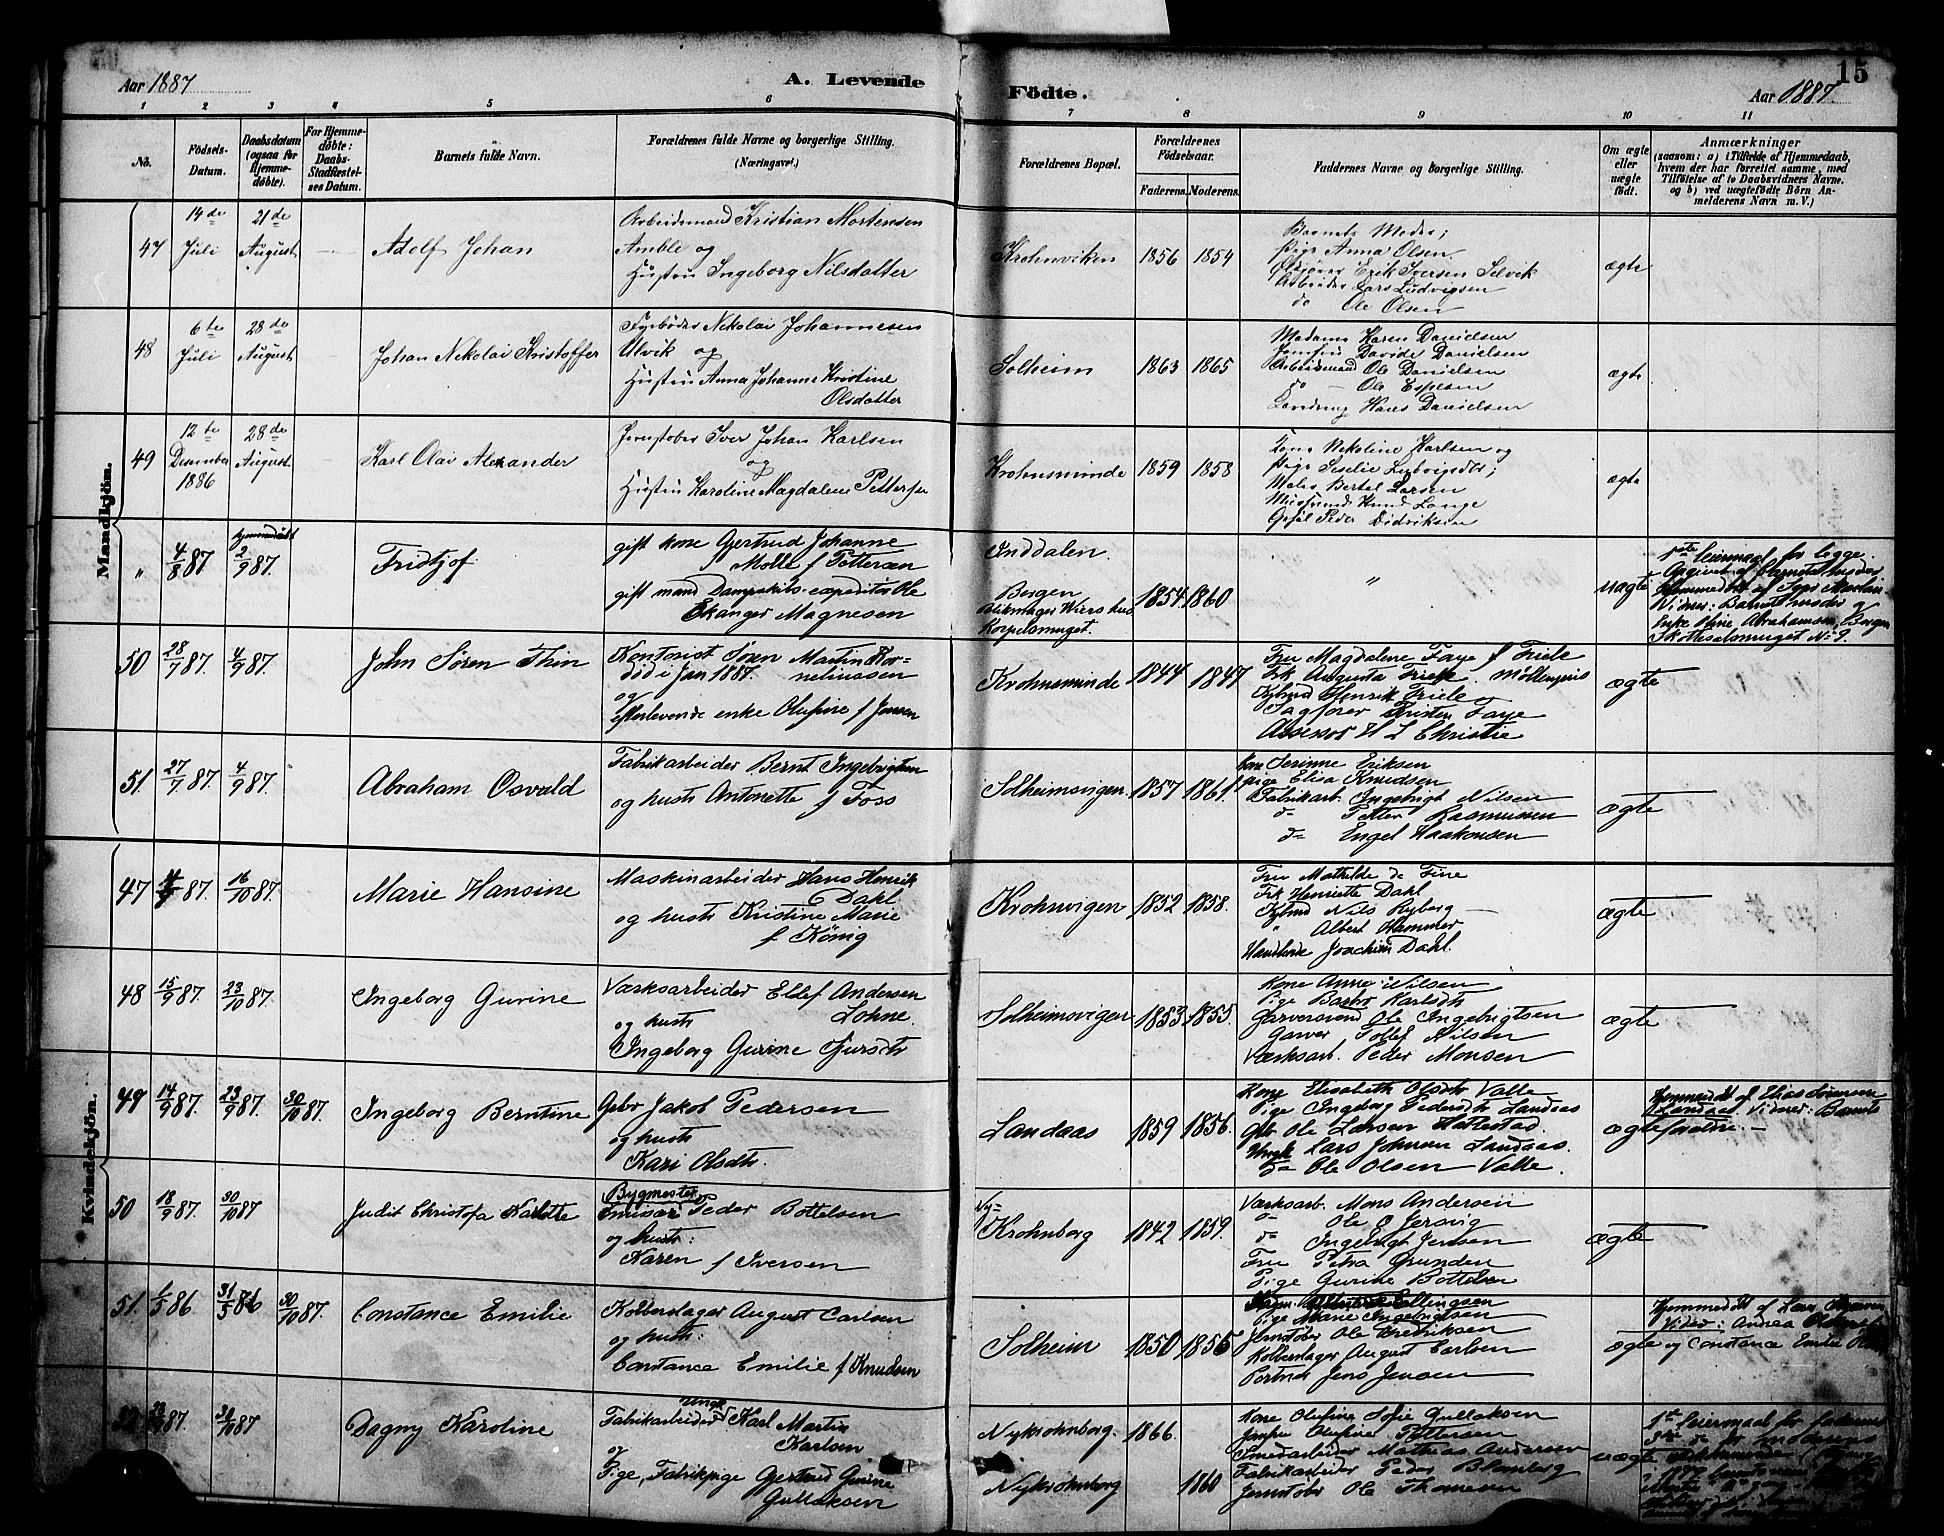 Aar 1887
A. Levende
Födte.
Aar 1887.
15
1 2 3 4 5 6 7 8 9 10 11
No.
Födsels-
Datum.
Daabsdatum
(ogsaa for
Hjemme-
döbte).
For Hjemme-
döbte:
Daabs-
Stadfæstel-
ses Datum.
Barnets fulde Navn.
Forældrenes fulde Navne og borgerlige Stilling.
(Næringsvei.)
Forældrenes Bopæl.
Forældrenes
Födselsaar.
Faderens. Moderens.
Faddernes Navne og borgerlige Stilling.
Om ægte
eller
uægte
födt.
Anmærkninger
(saasom: a) i Tilfælde af Hjemmedaab,
hvem der har forrettet samme, med
Tilföielse af to Daabsvidners Navne,
og b) ved uægtefödte Börn An-
melderens Navn m. V.)
Mandkjön.
47
14 de
Juli
21 de
August
Adolf Johan
Arbeidsmand Kristian Mortensen
Amble og
Hustru Ingeborg Nilsdatter
Krohnviken
1856
1854
Barnets Moder;
Pige Anna Olsen
Erik Iversen Selvik
Arbeider Lars Ludvigsen
do Ole Olsen
ægte
48
6 te
Juli
28 de
August
Johan Nikolai Kristoffer
Fyrböder Nikolai Johannesen
Ulvik og
Hustru Anna Johanne Kristine
Olsdatter
Solheim
1863
1865
Madame Karen Danielsen
Jomfru Davida Danielsen
Arbeidsmand Ole Danielsen
do — Ole Espesen
Hans Danielsen
ægte
49
12 te
Desember
1886
28 de
August
Karl Olai Alexander
Jernstöber Iver Johan Karlsen
og
Hustru Karoline Magdalene Petterse
Krohnsminde
1859
1858
Kone Nikoline Karlsen og
Pige Seselie Ludvigsdtr;
Maler Bertel Larsen
Knud Lange
Peder Didriksen
ægte
"
4/8 87
hjemmedöbt
2/9 87.
Fridtjof
gift kone Gjertrud Johanne
Molle f Pettersen
gift mand Dampskibs-expeditör Ole
Ekanger Magnesen
Inddalen.
Bergen
Blikslager Wiers hus
Korpelsmuget.
1854
1860
"
uægte
1ste leiermaal for begge.
Opgivet af barnets moder
Hjemmedöbt af
Vidner: Barnets moder &
Enke Oline Abrahamsen, Bergen
No 9.
50
28/7 87.
4/9 87.
John Sören Thin
Kontorist Sören Martin Kor-
död i Jan 1887. neliussen
og
efterlevende enke Olufine f Jensen
Krohnsminde
1844
1847
Fru Magdalene Faye f Friele
Frk Augusta Friele. Möllenpris
Kjbmd Henrik Friele
Sagförer Kristen Faye
Assessor H L Christie
ægte
51.
27/7 87.
4/9 87.
Abraham Osvald
Fabrikarbeider Bernt Ingebrigtsen
og hustr Antonette f Foss
Solheimsvigen
1857
1861
Kone Serinne Eriksen
pige Elisa Knudsen
Fabrikarb. Ingebrigt Nilsen
do Petter Rasmussen
do Engel Haakonsen
ægte
Kvindekjön.
47
87.
16/10 87.
Marie Hansine
Maskinarbeider Hans Henrik
Dahl
og hustr Kristine Marie
f König
Krohnvigen
1852
1858.
Fru Mathilde de Fine
Frk Henriette Dahl
Kjbmd Nils Ryberg
" Albert Hammer
Joachim Dahl.
ægte
48
15/9 87.
23/10 87.
Ingeborg Gurine
Værksarbeider Ellef Andersen
og hustr Lohne.
Ingeborg Gurine Sjursdtr
Solheimsvigen
1853
1855.
Kone Anne Nilsen
Pige Barbro Karlsdtr
Garversvend Ole Ingebrigtsen
Garver Tollef Nilsen
Værksarb. Peder Monsen
ægte
49
14/9 87.
23/9 87.
30/10 87.
Ingeborg Berntine
Gbr Jakob Pedersen
og hustr
Kari Olsdtr.
Landaas
1859
1856.
Kone Elisabeth Olsdtr Valle
Pige Ingeborg Pedersdtr Landaas
Gbr Ole Larsen Hattestad
Ungk Lars Johnsen Landaas.
do Ole Olsen Valle.
ægte
Hjemmedöbt af Elias Sörensen
Landaas. Vidner: Barnets
forældre. —
50
18/9 87.
30/10 87
Judit Christofa Karlotte
Bygmester
Emissær Peder Bottelsen
og hustr:
Karen f Iversen
Ny-
Krohnborg
1842
1859.
Værksarb. Mons Andersen
do Ole O Jersvig
do Ingebrigt Jensen
Fru Petra Grunden
Pige Gurine Bottelsen
ægte
51.
1/5 86
31/5 86
30/10 87.
Constance Emilie
Kobberslager August Carlsen
og hustr:
Constance Emilie f Knudsen
Solheim
1850
1856
Ellingsen
Pige Marie Ingebrigtsen
Jernstöber Ole Fredriksen
Kobberslager August Carlsen
Jens Jensen
ægte
Hjemmedöbt af
Vidner: Andrea
og Constance Emilie
52
87.
30/10 87
Dagny Karoline
Ungk
Fabrikarbeider Karl Martin
Karlsen
og
Pige, Fabrikpige Gjertrud Gurine
Gullaksen
Nykrohnborg.
Nykrohnborg
1866.
1860
Kone Olufine Sofie Gullaksen
Jomfru Olufine Pettersen
Smedarbeider Mathias Andersen
Fabrikarbeider Peder Blomberg
Jernstöber Ole Thomesen
uægte
1ste leiermaal for faderen
for moderens